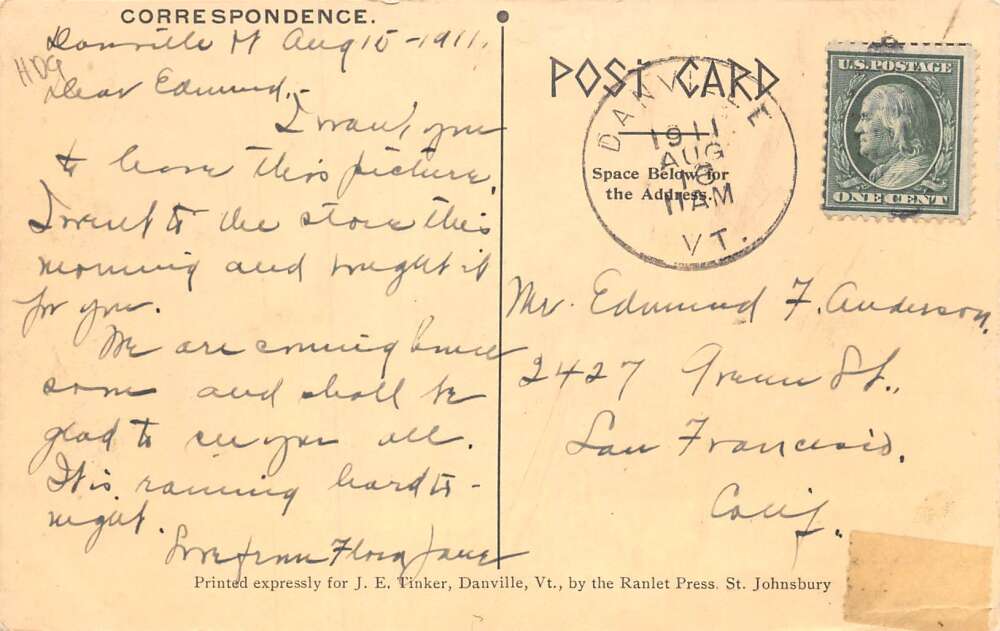 CORRESPONDENCE.
Danville Vt Aug 15-1911.
HDG
Dear Edmund,-
I want you
to have this picture.
I went to the store this
morning and bought it
for you.
We are coming home
soon and shall be
glad to see you all.
It is raining hard to-
night.
Love from Flora Jane
POST CARD
Space Below for
the Address.
DANVILLE
1911
AUG
16
11 AM
VT.
U.S. POSTAGE
ONE CENT
Mr. Edmund F. Anderson,
2427 Green St.,
San Francisco,
Calif.
Printed expressly for J. E. Tinker, Danville, Vt., by the Ranlet Press. St. Johnsbury